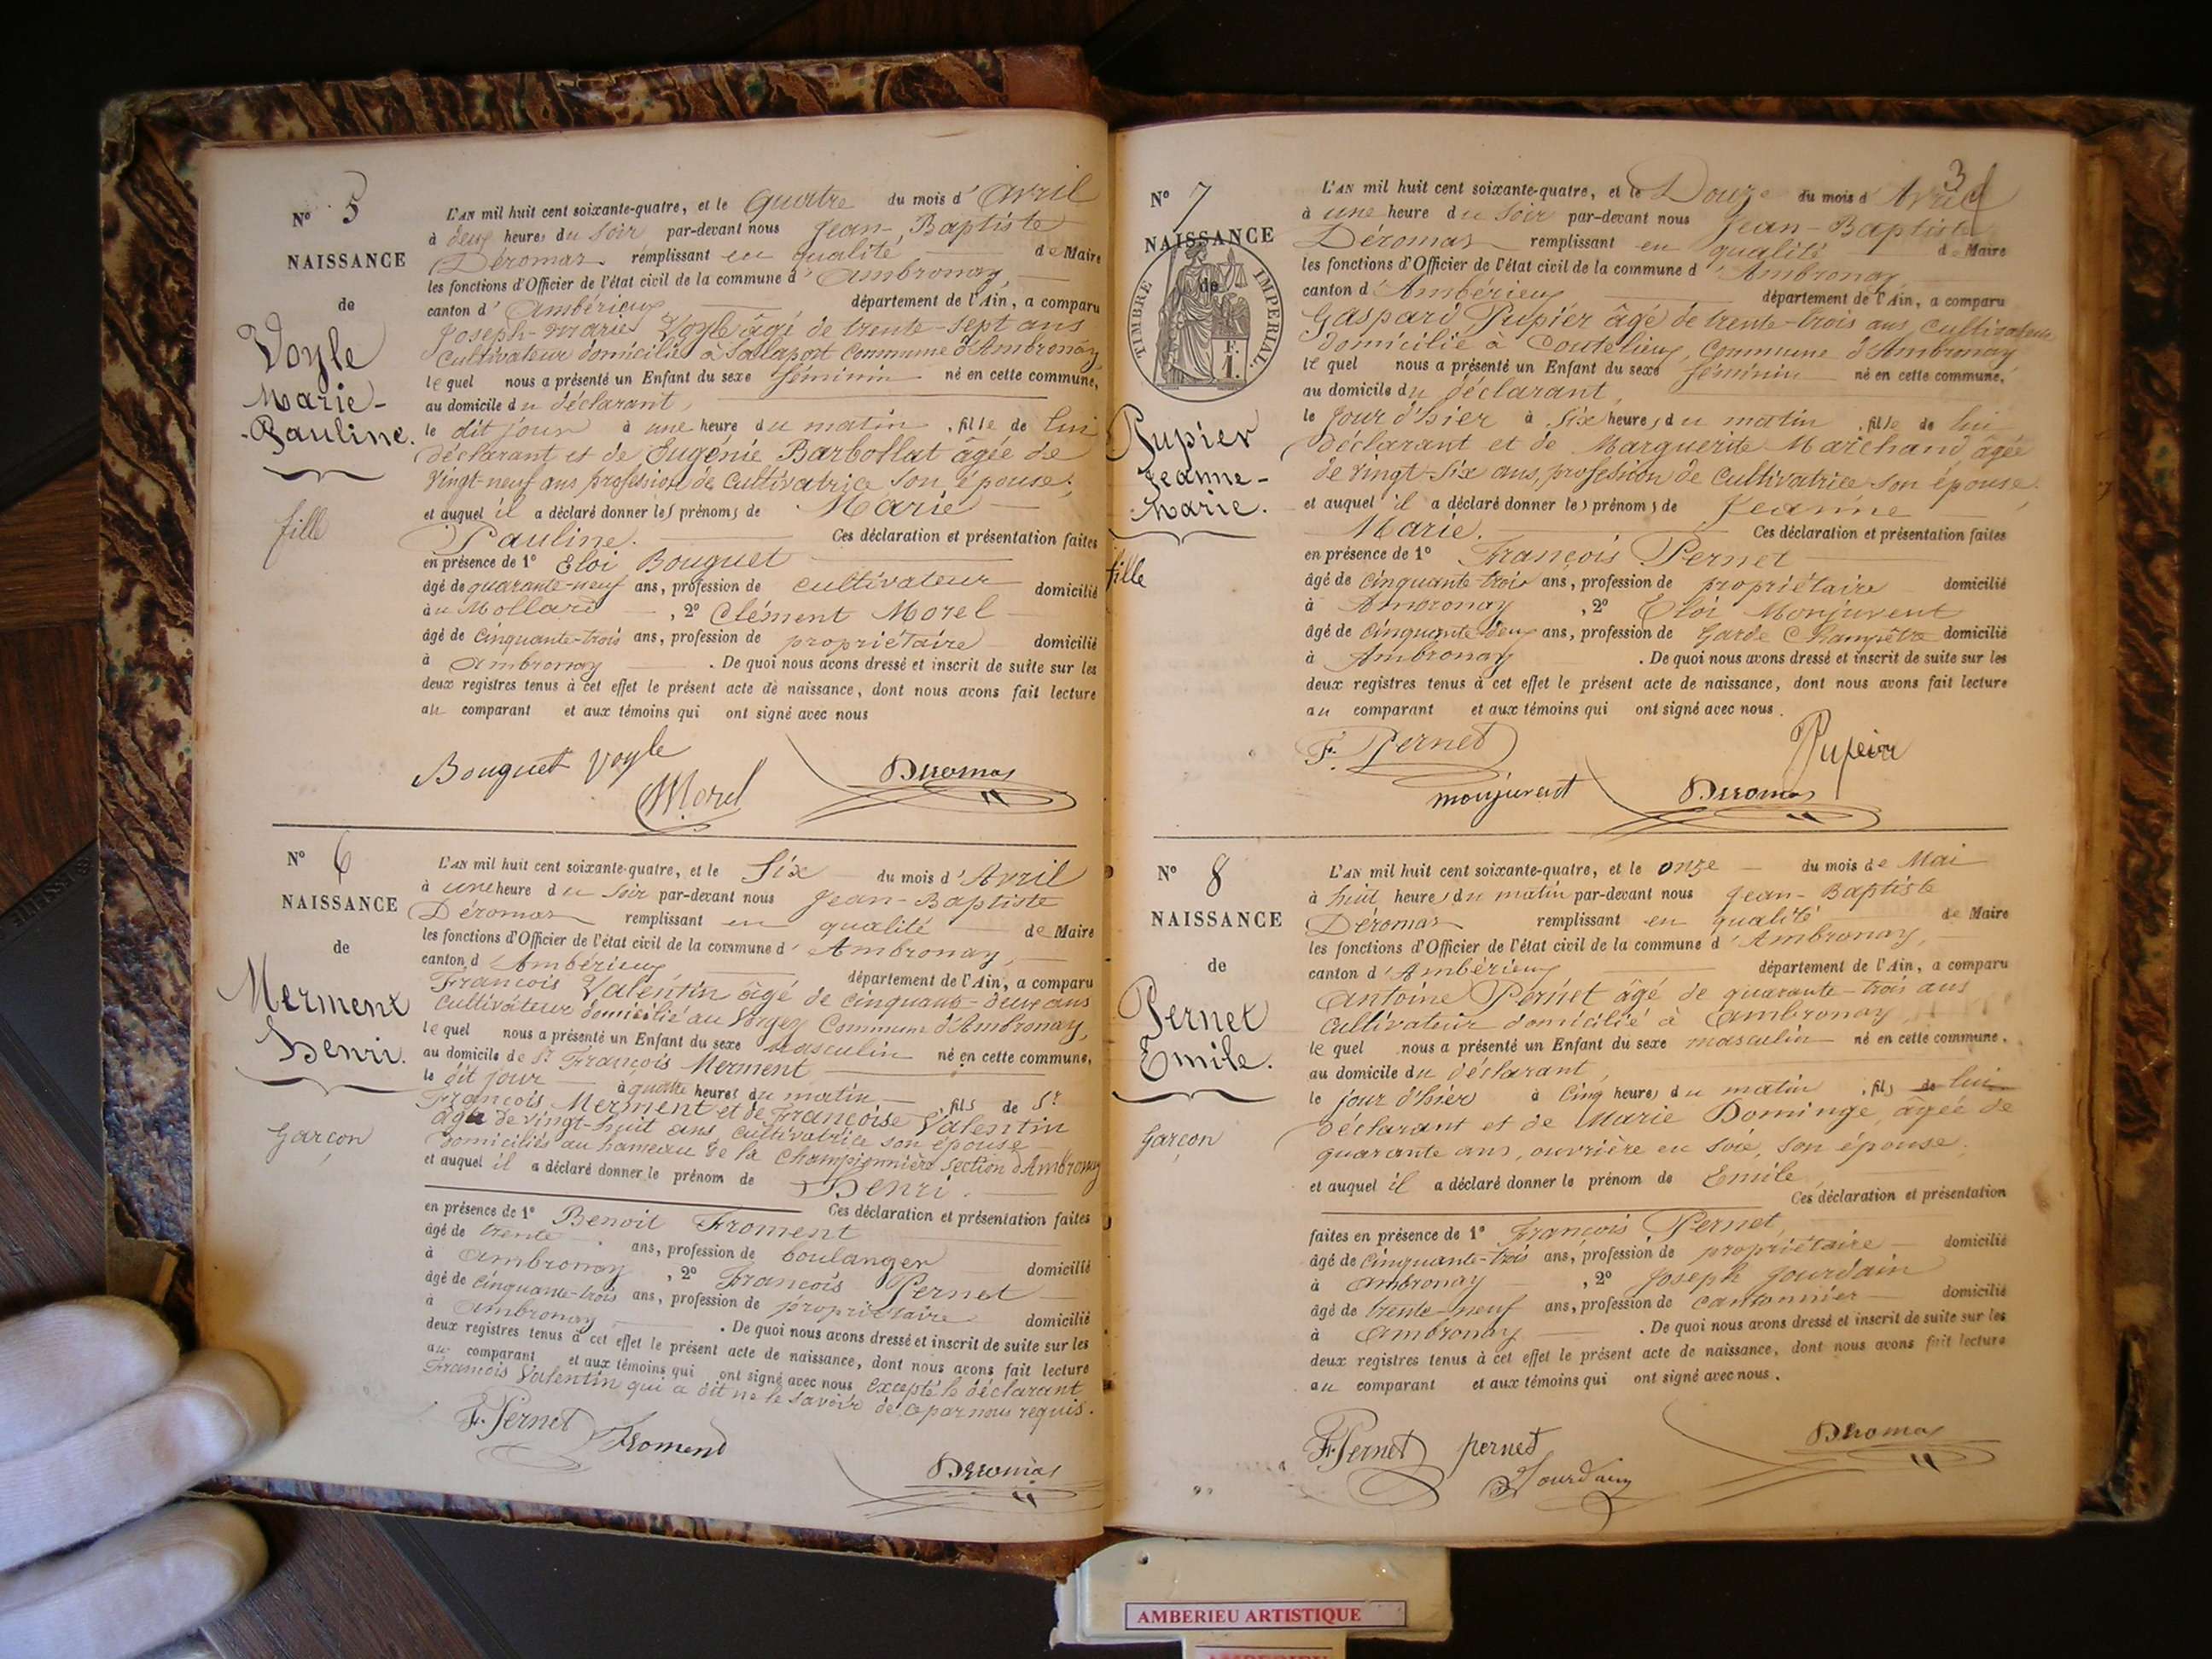 Nº 5
NAISSANCE
de
Voyle
Marie-
Pauline.
fille
L'AN mil huit cent soixante-quatre, et le Quatre du mois d'Avril
à deux heures du Soir par-devant nous Jean-Baptiste
Déromas remplissant en qualité de Maire
les fonctions d'Officier de l'état civil de la commune d'Ambronay,
canton d'Ambérieux département de l'Ain, a comparu
Joseph-Marie Voyle âgé de trente-sept ans
Cultivateur domicilié à Salaport Commune d'Ambronay,
lequel nous a présenté un Enfant du sexe féminin né en cette commune,
au domicile du déclarant,
le dit jour à une heure du matin, fille de lui
déclarant et de Eugénie Barbollat âgée de
Vingt-neuf ans profession de Cultivatrice son épouse;
et auquel il a déclaré donner les prénoms de Marie
Pauline. Ces déclaration et présentation faites
en présence de 1º Eloi Bouguet
âgé de quarante-neuf ans, profession de cultivateur domicilié
au Mollard, 2º Clément Morel
âgé de Cinquante-trois ans, profession de propriétaire domicilié
à Ambronay. De quoi nous avons dressé et inscrit de suite sur les
deux registres tenus à cet effet le présent acte de naissance, dont nous avons fait lecture
au comparant et aux témoins qui ont signé avec nous
Bouguet Voyle
CMorel Déromas
Nº 6
NAISSANCE
de
Merment
Henri.
Garçon
L'AN mil huit cent soixante-quatre, et le Six du mois d'Avril
à une heure du Soir par-devant nous Jean-Baptiste
Déromas remplissant en qualité de Maire
les fonctions d'Officier de l'état civil de la commune d'Ambronay,
canton d'Ambérieux département de l'Ain, a comparu
François Valentin âgé de cinquante-deux ans
Cultivateur domicilié au Vorgey Commune d'Ambronay,
lequel nous a présenté un Enfant du sexe masculin né en cette commune,
au domicile de Sr François Merment
le dit jour à quatre heures du matin, fils de Sr
François Merment et de Françoise Valentin
âgée de vingt-huit ans cultivatrice son épouse
domiciliés au hameau de la Championnière section d'Ambronay
et auquel il a déclaré donner le prénom de Henri.
Ces déclaration et présentation faites
en présence de 1º Benoit Froment
âgé de trente ans, profession de boulanger domicilié
à Ambronay, 2º François Pernet
âgé de cinquante-trois ans, profession de propriétaire domicilié
à Ambronay. De quoi nous avons dressé et inscrit de suite sur les
deux registres tenus à cet effet le présent acte de naissance, dont nous avons fait lecture
au comparant et aux témoins qui ont signé avec nous excepté le déclarant
François Valentin qui a dit ne le savoir de ce par nous requis.
F. Pernet Froment
Déromas
3
Nº 7
NAISSANCE
de
TIMBRE IMPERIAL.
F.
1.
Pupier
Jeanne-
Marie.
fille
L'AN mil huit cent soixante-quatre, et le Douze du mois d'Avril
à une heure du Soir par-devant nous Jean-Baptiste
Déromas remplissant en qualité de Maire
les fonctions d'Officier de l'état civil de la commune d'Ambronay
canton d'Ambérieux département de l'Ain, a comparu
Gaspard Pupier âgé de trente-trois ans, cultivateur
domicilié à Coutelieux, Commune d'Ambronay
lequel nous a présenté un Enfant du sexe féminin né en cette commune,
au domicile du déclarant,
le jour d'hier à Six heures du matin, fille de lui
déclarant et de Marguerite Marchand, âgée
de vingt-six ans, profession de cultivatrice son épouse,
et auquel il a déclaré donner les prénoms de Jeanne
Marie. Ces déclaration et présentation faites
en présence de 1º François Pernet
âgé de Cinquante-trois ans, profession de propriétaire domicilié
à Ambronay, 2º Eloi Monjuvent
âgé de cinquante-deux ans, profession de Garde Champêtre domicilié
à Ambronay. De quoi nous avons dressé et inscrit de suite sur les
deux registres tenus à cet effet le présent acte de naissance, dont nous avons fait lecture
au comparant et aux témoins qui ont signé avec nous.
F. Pernet Pupier
monjuvent Déromas
Nº 8
NAISSANCE
de
Pernet
Emile.
Garçon
L'AN mil huit cent soixante-quatre, et le onze du mois de Mai
à huit heures du matin par-devant nous Jean-Baptiste
Déromas remplissant en qualité de Maire
les fonctions d'Officier de l'état civil de la commune d'Ambronay,
canton d'Ambérieux département de l'Ain, a comparu
Antoine Pernet âgé de quarante-trois ans
Cultivateur domicilié à Ambronay
lequel nous a présenté un Enfant du sexe masculin né en cette commune,
au domicile du déclarant,
le jour d'hier à Cinq heures du matin, fils de lui
déclarant et de Marie Dominge, âgée de
quarante ans, ouvrière en soie, son épouse,
et auquel il a déclaré donner le prénom de Emile
Ces déclaration et présentation
faites en présence de 1º François Pernet,
âgé de cinquante-trois ans, profession de propriétaire domicilié
à Ambronay, 2º Joseph Jourdain
âgé de trente-neuf ans, profession de cantonnier domicilié
à Ambronay. De quoi nous avons dressé et inscrit de suite sur les
deux registres tenus à cet effet le présent acte de naissance, dont nous avons fait lecture
au comparant et aux témoins qui ont signé avec nous.
F. Pernet pernet Déromas
Jourdain
AMBERIEU ARTISTIQUE
AMBERIEU